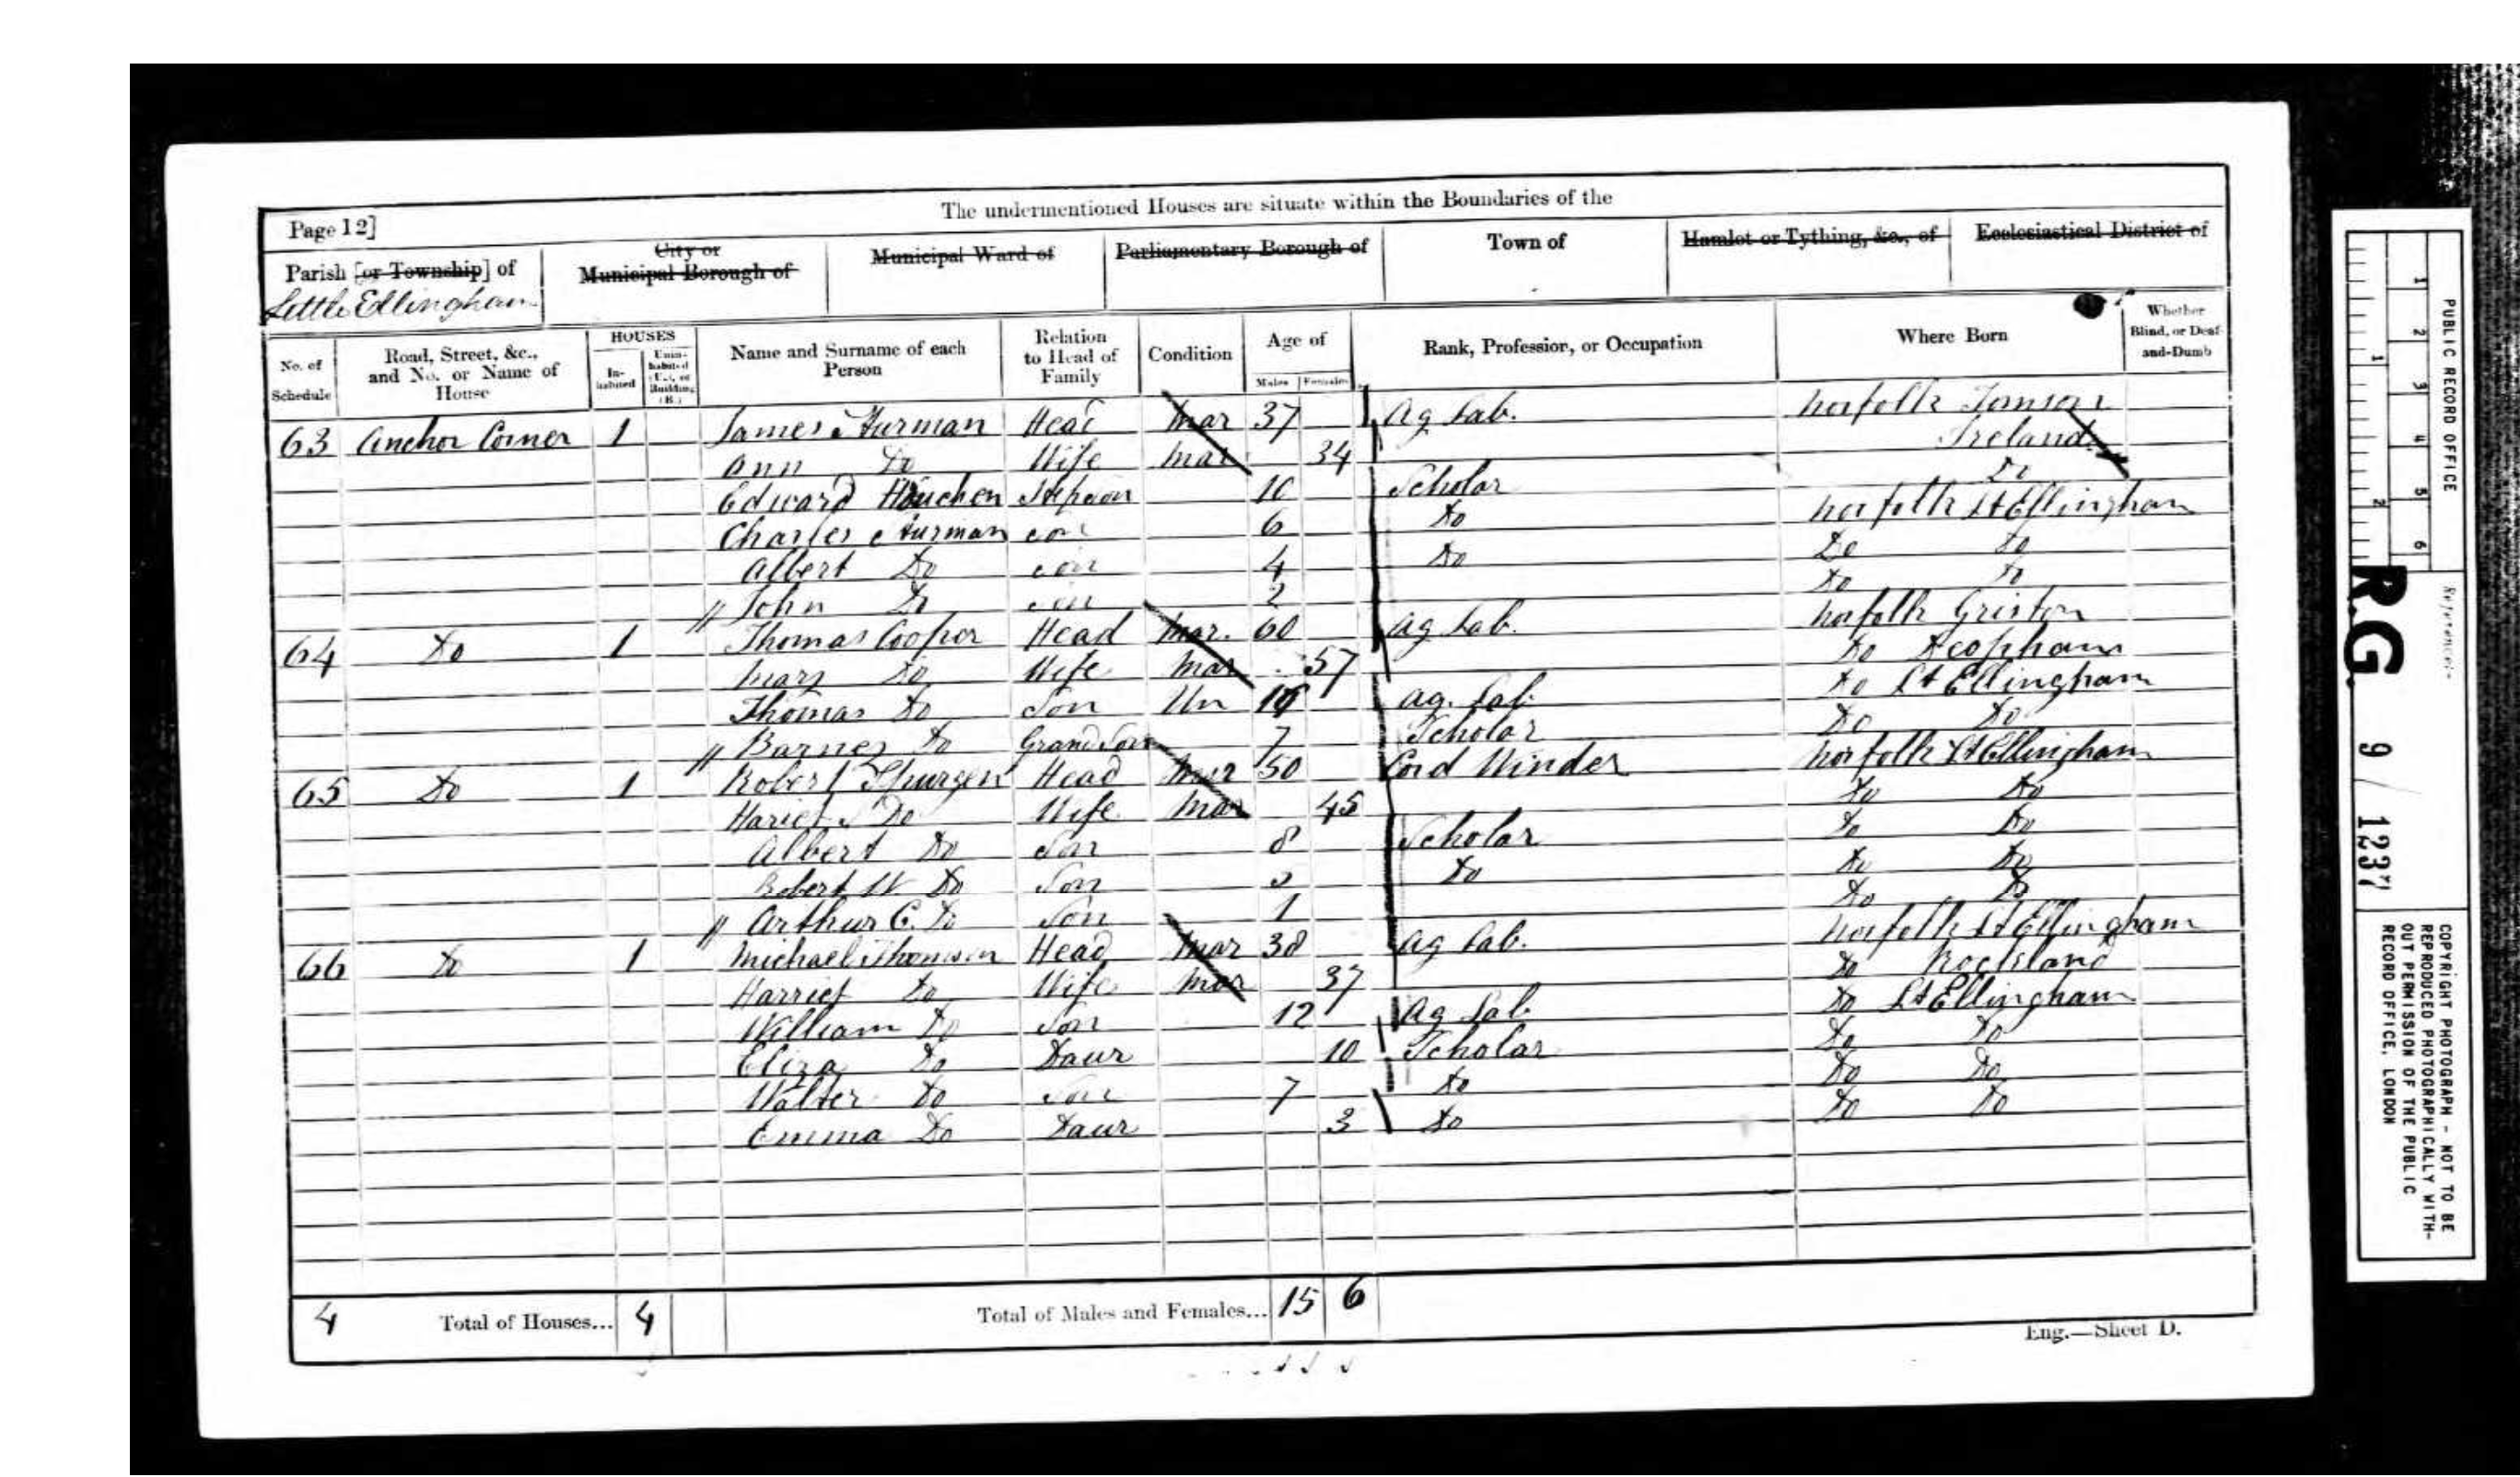 The undermentioned Houses are situate within the Boundaries of the
Page 12]
Parish [or Township] of
Little Ellingham
City or
Municipal Borough of
Municipal Ward of
Parliamentary Borough of
Town of
Hamlet or Tything, &c., of
Ecclesiastical District of
No. of Schedule
Road, Street, &c., and No. or Name of House
HOUSES
In-habited
Unin-habited (U.), or Building (B.)
Name and Surname of each Person
Relation to Head of Family
Condition
Age of
Males Females
Rank, Profession, or Occupation
Where Born
Whether Blind, or Deaf-and-Dumb
63 Anchor Corner 1 James Head Mar 37 Ag Lab. Norfolk
Ann Do Wife Mar 34 Ireland
Edward Houchen Stepson 10 Scholar Do
Charles son 6 Do Norfolk Lt Ellingham
Albert Do son 4 Do Do Do
" John Do son 2 Do Do
64 Do 1 Thomas Cooper Head Mar. 60 Ag Lab. Norfolk Griston
Mary Do Wife Mar 57 Do
Thomas Do Son Un Ag. Lab Do Lt Ellingham
" Barnes Do Grand Son 7 Scholar Do Do
65 Do 1 Robert Spurgen Head Mar 50 Cord Winder Norfolk Lt Ellingham
Hariet S Do Wife Mar 45 Do Do
Albert Do Son 8 Scholar Do Do
Robert W Do Son Do Do Do
" Arthur C. Do Son 1 Do Do
66 Do 1 Michael Thomson Head Mar 38 Ag Lab. Norfolk Lt Ellingham
Harriet Do Wife Mar 37 Do Rockland
William Do Son 12 Ag Lab Do Lt Ellingham
Eliza Do Daur 10 Scholar Do Do
Walter Do son 7 Do Do Do
Emma Do Daur 3 Do Do Do
4 Total of Houses... 4 Total of Males and Females... 15 6
Eng.—Sheet D.
PUBLIC RECORD OFFICE
1 2 3 4 5 6
1 2
Reference:-
R.G. 9 / 1237
COPYRIGHT PHOTOGRAPH - NOT TO BE
REPRODUCED PHOTOGRAPHICALLY WITH-
OUT PERMISSION OF THE PUBLIC
RECORD OFFICE, LONDON